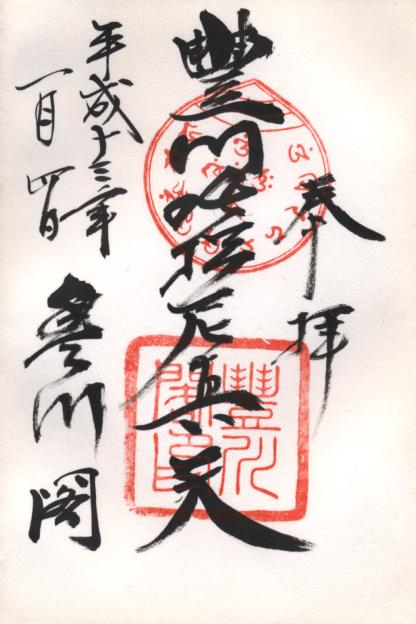 奉拝
豐川吒枳尼真天
平成十三年
一月四日
豊川閣
豐川閣印